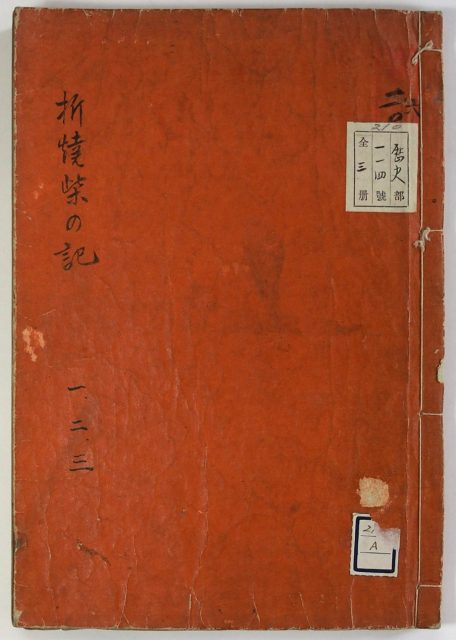 折燒柴の記
一、二、三
二六
210
歷史部
一一四號
全三册
21
A